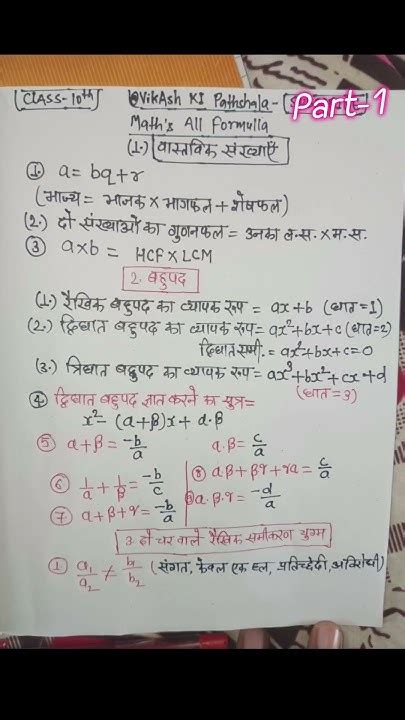 CLASS-10th @VikAsh KI Pathshala-
Part-1
Math's All Formulla
(1.) वास्तविक संख्याएँ
1. a = bq+r
(भाज्य = भाजक × भागफल + शेषफल)
(2.) दो संख्याओं का गुणनफल = उनका ल.स. × म.स.
③ a×b = HCF × LCM
2. बहुपद
(1.) रैखिक बहुपद का व्यापक रूप = ax+b (घात=1)
(2.) द्विघात बहुपद का व्यापक रूप = ax²+bx+c (घात=2)
द्विघात समी. = ax²+bx+c=0
(3.) त्रिघात बहुपद का व्यापक रूप = ax³+bx²+cx+d
(घात=3)
④ द्विघात बहुपद ज्ञात करने का सूत्र=
x²-(α+β)x+α.β
⑤ α+β = -b/a α.β = c/a
⑥ 1/α + 1/β = -b/c
⑧ αβ+βγ+γα = c/a
⑦ α+β+γ = -b/a
⑨ α.β.γ = -d/a
3. दो चर वाले रैखिक समीकरण युग्म
① a₁/a₂ ≠ b₁/b₂ (संगत, केवल एक हल, प्रतिच्छेदी, अविरोधी)